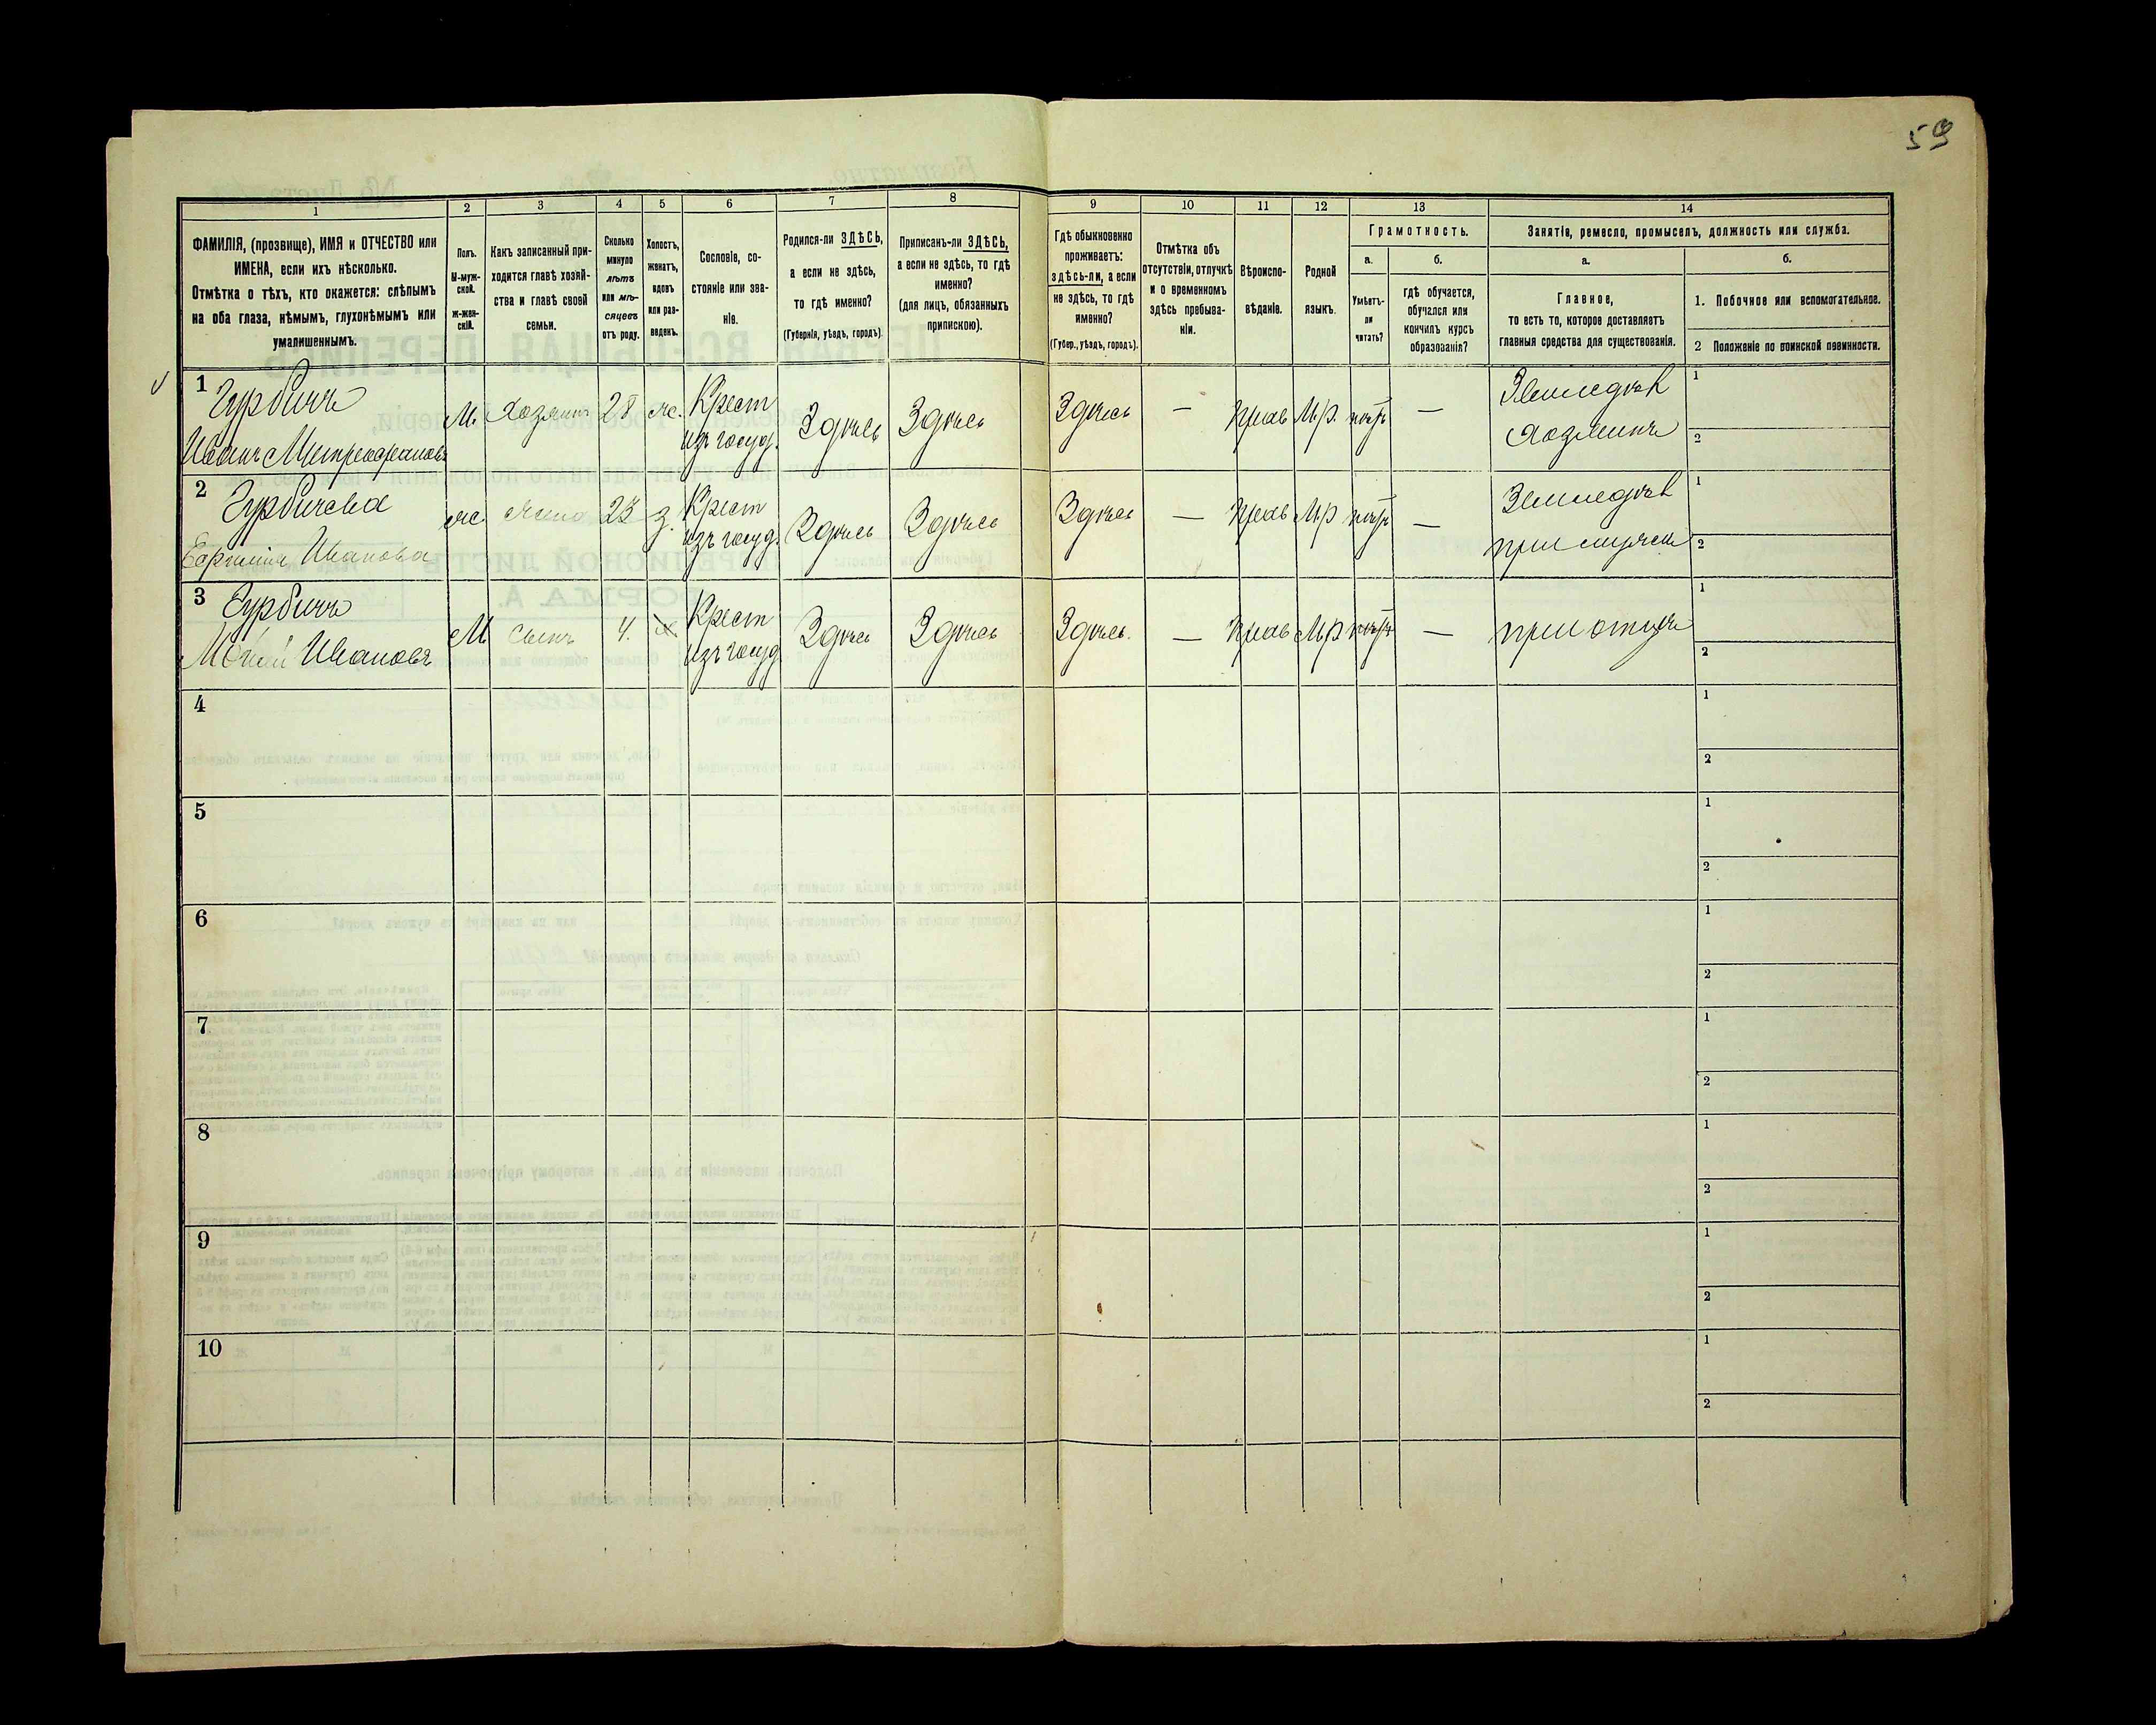 59
1 2 3 4 5 6 7 8 9 10 11 12 13 14
ФАМИЛІЯ, (прозвище), ИМЯ и ОТЧЕСТВО или
ИМЕНА, если ихъ нѣсколько.
Отмѣтка о тѣхъ, кто окажется: слѣпымъ
на оба глаза, нѣмымъ, глухонѣмымъ или
умалишеннымъ.
Полъ.
М-муж-
ской.
Ж-жен-
скій.
Какъ записанный при-
ходится главѣ хозяй-
ства и главѣ своей
семьи.
Сколько
минуло
лѣтъ
или мѣ-
сяцевъ
отъ роду.
Холостъ,
женатъ,
вдовъ
или раз-
веденъ.
Сословіе, со-
стояніе или зва-
ніе.
Родился-ли ЗДѢСЬ,
а если не здѣсь,
то гдѣ именно?
(Губернія, уѣздъ, городъ).
Приписанъ-ли ЗДѢСЬ,
а если не здѣсь, то гдѣ
именно?
(для лицъ, обязанныхъ
припискою).
Гдѣ обыкновенно
проживаетъ:
здѣсь-ли, а если
не здѣсь, то гдѣ
именно?
(Губер., уѣздъ, городъ).
Отмѣтка объ
отсутствіи, отлучкѣ
и о временномъ
здѣсь пребыва-
ніи.
Вѣроиспо-
вѣданіе.
Родной
языкъ.
Грамотность.
а.
Умѣетъ-
ли
читать?
б.
гдѣ обучается,
обучался или
кончилъ курсъ
образованія?
Занятіе, ремесло, промыселъ, должность или служба.
а.
Главное,
то есть то, которое доставляетъ
главныя средства для существованія.
б.
1. Побочное или вспомогательное.
2 Положеніе по воинской повинности.
1 Гурбичъ М. Хозяинъ 28 ж. Крест Здѣсь Здѣсь Здѣсь — Прав М.р. нѣтъ — Земледѣл 1
Иванъ изъ госуд. Хозяинъ 2
2 Гурбичева ж. жена 23 з. Крест Здѣсь Здѣсь Здѣсь — Прав М.р. нѣтъ — Земледѣл 1
Иванова изъ госуд. при мужѣ 2
3 Гурбичъ М сынъ 4. х. Крест Здѣсь Здѣсь Здѣсь. — Прав М.р. нѣтъ — при отцѣ 1
Ивановъ изъ госуд 2
4 1
2
5 1
2
6 1
2
7 1
2
8 1
2
9 1
2
10 1
2